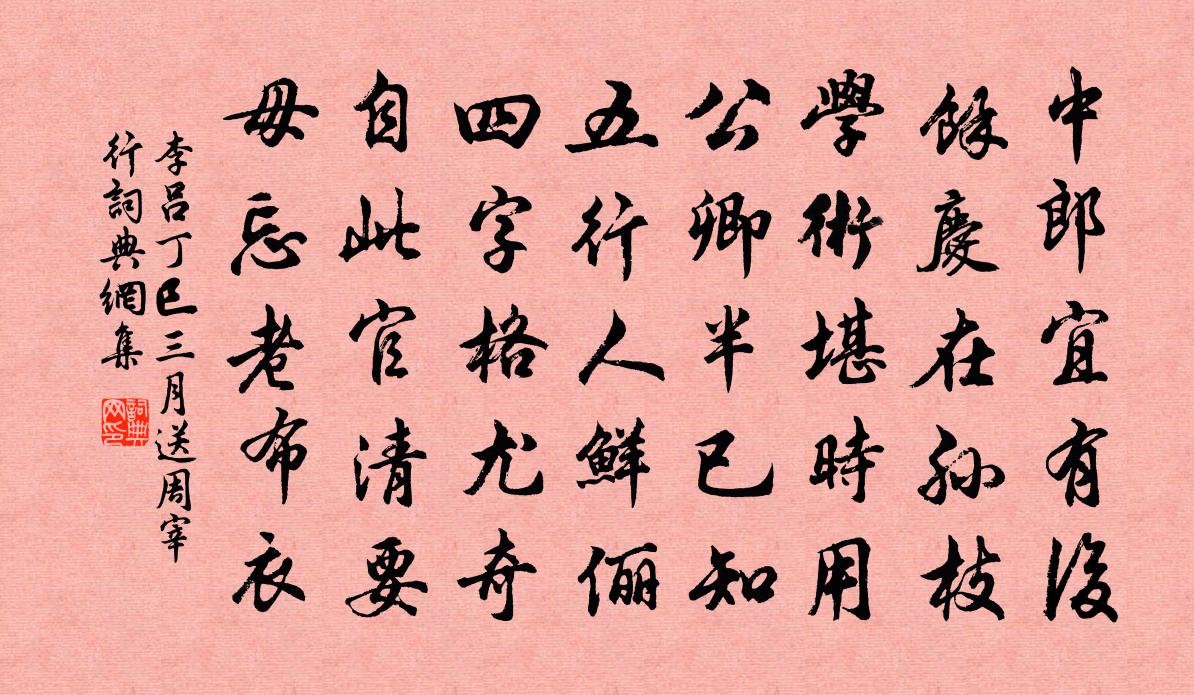 中郎宜有後
餘慶在孙枝
學術堪時用
公卿半已知
五行人鮮儷
四字格尤奇
自此官清要
毋忘老布衣
李吕丁巳三月送周宰
行詞典網集
詞典
网印